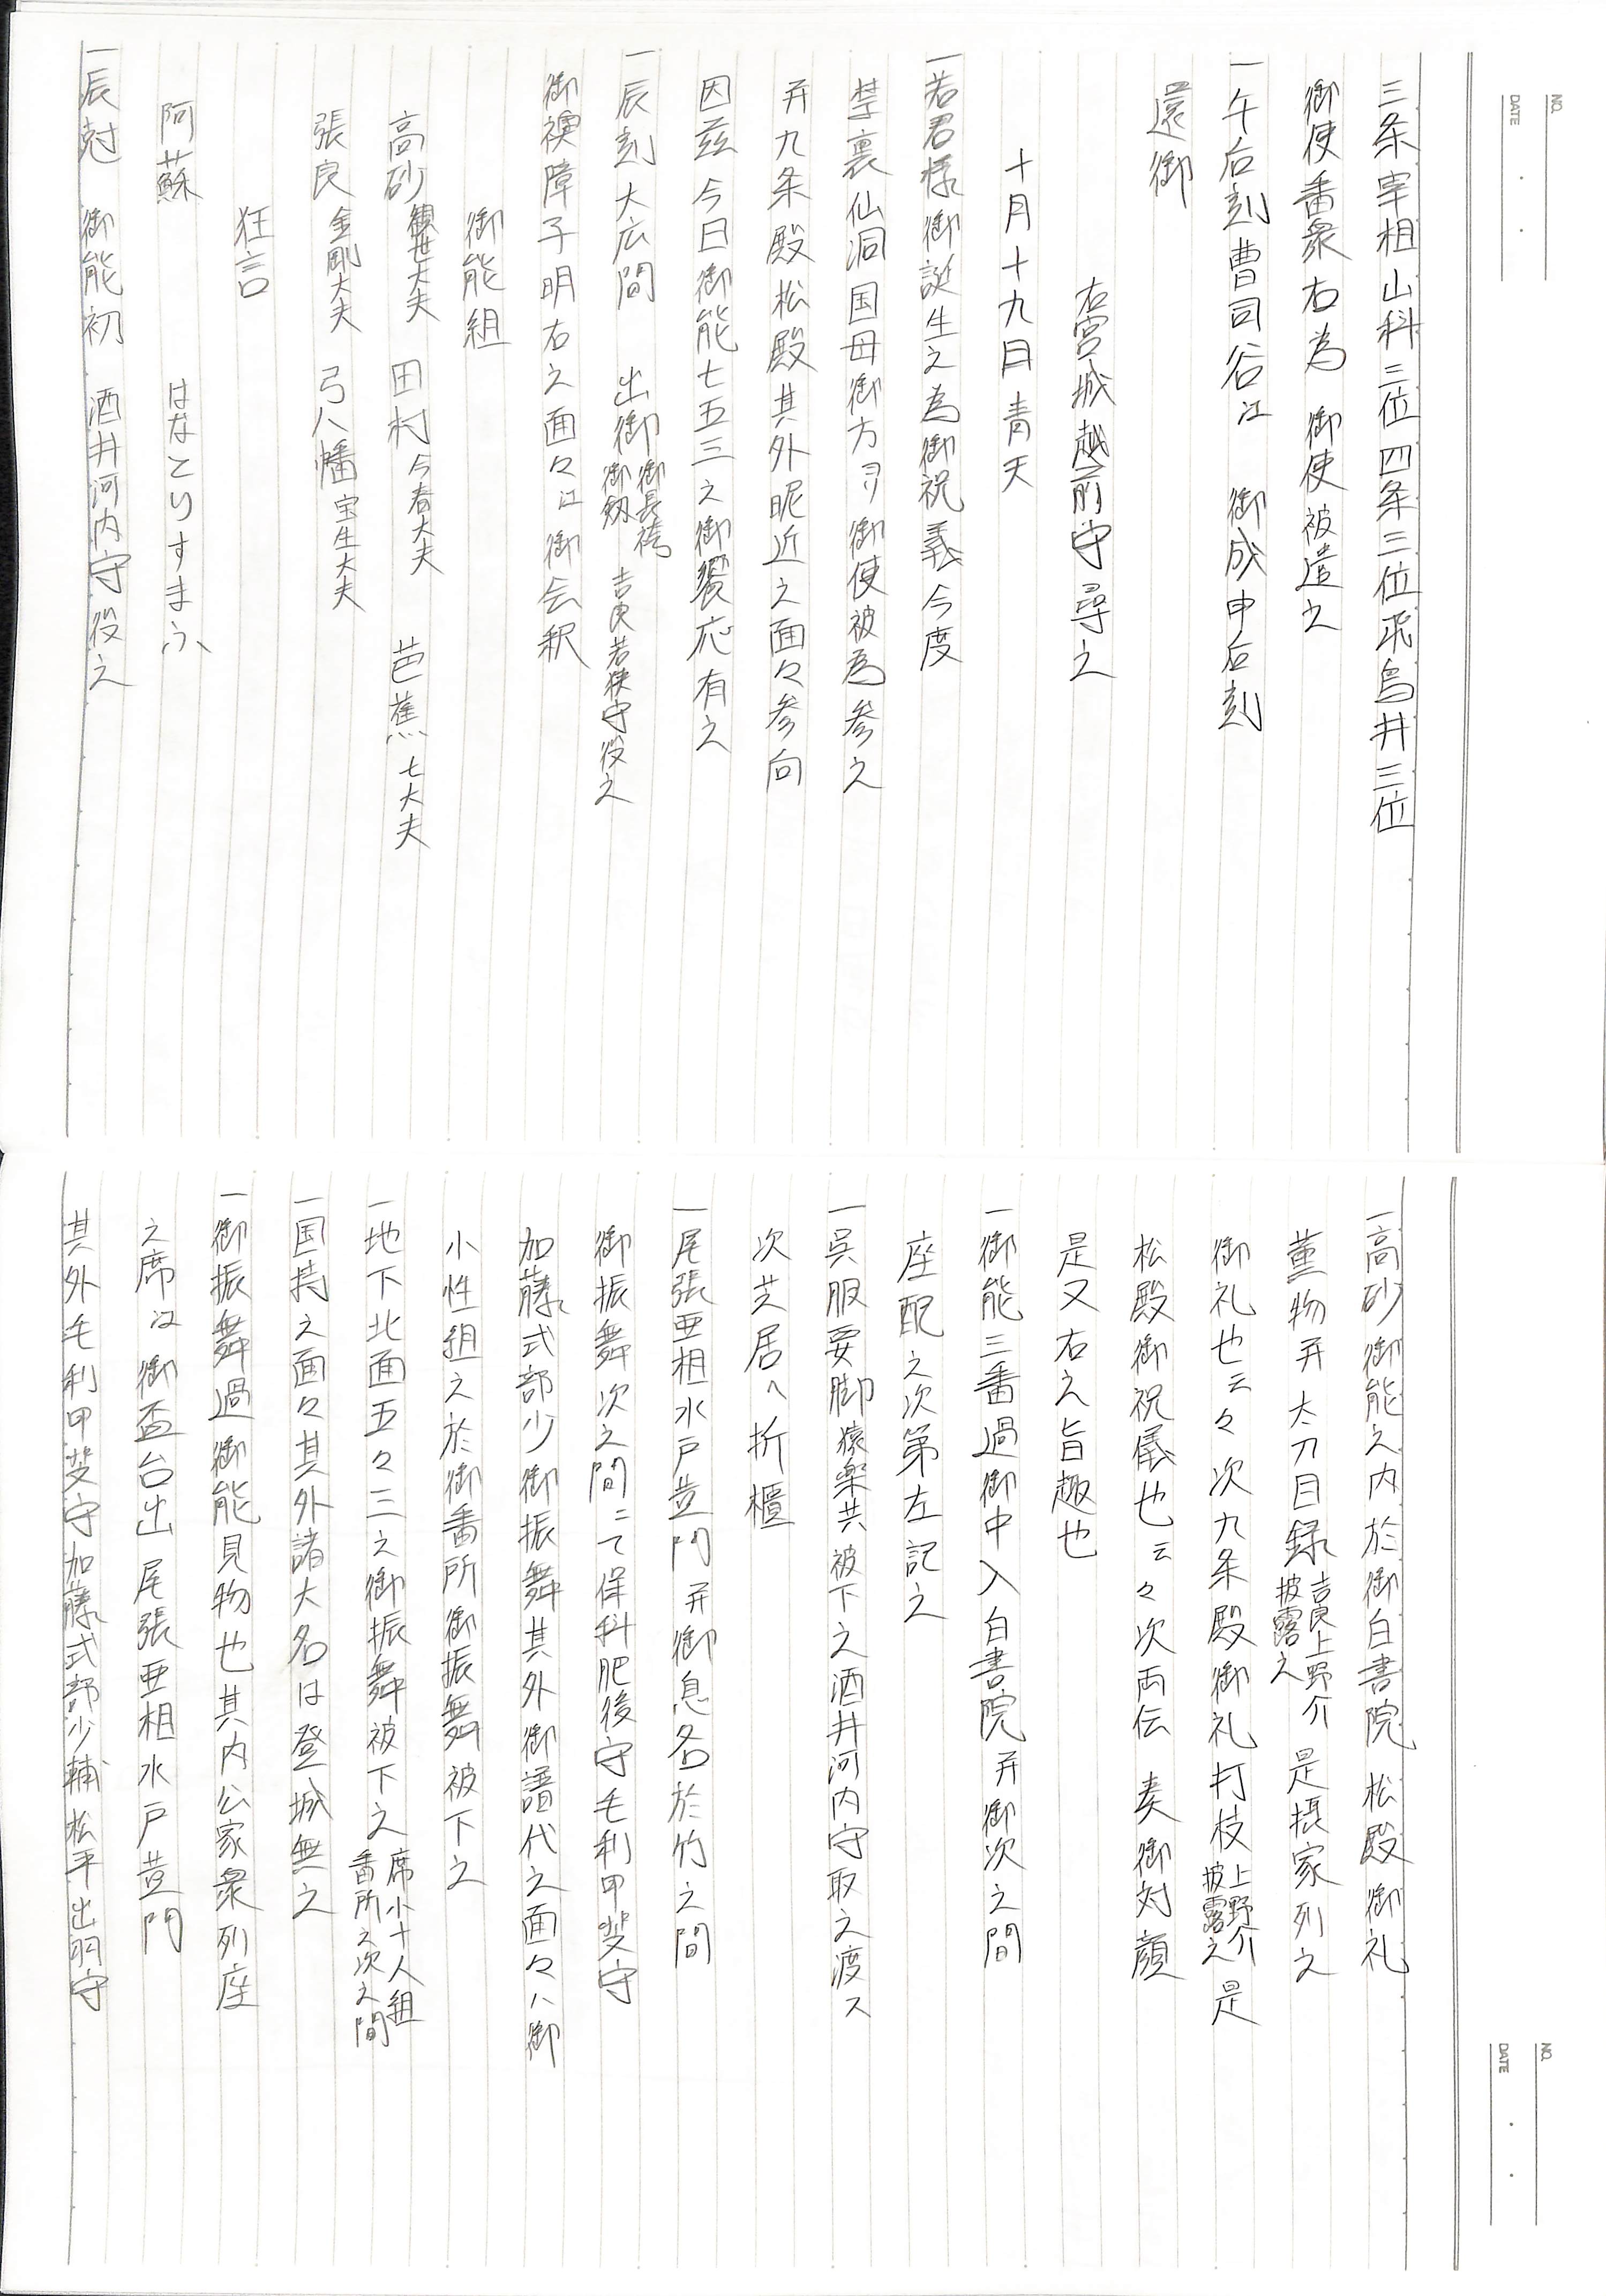 NO.
DATE
三条宰相山科三位四条三位飛鳥井三位
御使番衆右為 御使被遣之
一午后刻曹司谷江 御成申后刻
還御
右宮城越前守尋之
十月十九日青天
一若君様御誕生之為御祝義今度
禁裏仙洞国母御方ゟ御使被為参之
并九条殿松殿其外昵近之面々参向
因茲今日御能七五三之御饗応有之
一辰刻大広間 出御御長袴御剱 吉良若狭守役之
御襖障子明右之面々江御会釈
御能組
高砂 観世大夫 田村 今春大夫 芭蕉 七大夫
張良 金剛大夫 弓八幡 宝生大夫
狂言
阿蘇 はなとりすまふ
一辰尅 御能初 酒井河内守役之
NO.
DATE
一高砂御能之内於御白書院 松殿御礼
薫物并太刀目録吉良上野介披露之 是摂家列之
御礼也云々次九条殿御礼打枝上野介披露之 是
松殿御祝儀也云々次両伝 奏御対顔
是又右之旨趣也
一御能三番過御中入白書院并御次之間
座配之次第左記之
一呉服要脚猿楽共被下之酒井河内守取之渡ス
次芝居へ折櫃
一尾張亜相水戸黄門并御息各於竹之間
御振舞次之間ニて保科肥後守毛利甲斐守
加藤式部少御振舞其外御譜代之面々ハ御
小性組之於御番所御振舞被下之
一地下北面五々三之御振舞被下之席小十人組番所之次之間
一国持之面々其外諸大名は登城無之
一御振舞過御能見物也其内公家衆列座
之席江御盃台出尾張亜相水戸黄門
其外毛利甲斐守加藤式部少輔松平出羽守